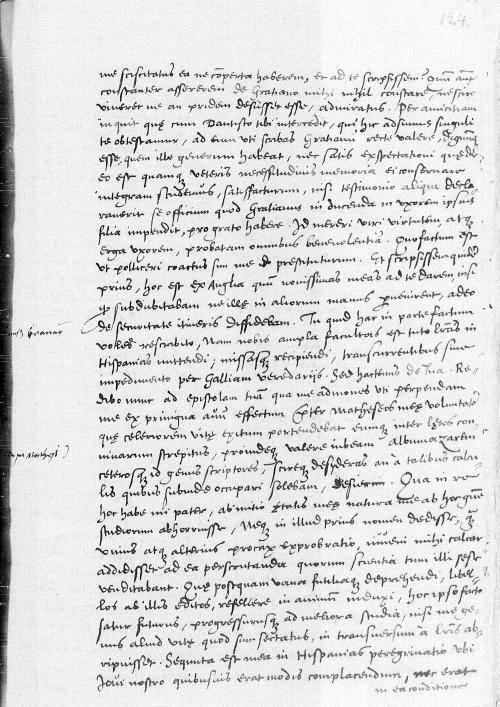 124
me sciscitatus ea ne comperta haberem, et ad te scripsissem. Cum autem
constanter assererem de Gratiano mihi nihil constare, nescire
viveret ne an pridem desiisset esse, admiratus. Per amicitiam
inquit quę cum Dantisco tibi intercedit, qui hic adsumus singuli
te obtestamur, ad eum uti scribas Gratianum recte valere, dignumque
esse, quem ille generum habeat, nec satis exspectationi quę de
eo est quamque veteris necessitudinis memoria ei conservare
integram studemus, satisfacturum, nisi testimonio aliquo decla
raverit se officium quod Gratianus in ducenda in uxorem ipsius
filia impendit, pro grato habere. Id mereri viri virtutem, atque
erga uxorem, probatam omnibus benevolentiam. Quo factum est
ut polliceri coactus sim me prestiturum. Et scripsissem quidem
prius, hoc est ex Anglia quum novissimas meas ad te darem, nisi
subdubitabam ne ille in aliorum manus pervenirent, adeo
de securitate itineris diffidebam. Tu quid hac in parte factum
voles rescribito, Nam nobis ampla facultas est tuto literas in
Hispanias mittendi, missasque recipiendi, transcurrentibus sine
impedimento per Galliam veredariis. Sed hactenus de Re
dibo nunc ad epistolam tuam qua me admones uti perpendam
me ex pringua effectum preter Matheseos meę voluptatem
quę celeriorem vitę exitum portendebat eumque inter letes con
vivarum strepitus, proindeque valere iubeam Albumazarem
ceterosque id genus scriptores, scireque desyderas an a talibus calcu
lis quibus subinde occupari solebam, desierim. Qua in re
hoc habe mi pater, ab initio ętatis meę natura me ab hoc genere
studiorum abhorruisse, Neque in illud prius nomen dedisse, quam
unius atque alterius procax exprobratio, iuveni mihi calcar
addidisset ad ea perscrutanda quorum scientia tum illi sese
venditabant. Quę postquam vana futiliaque deprehendi, libel
los ab illis editos, refellere in animum induxi, hoc ipso facto
satur futurus, progressurusque ad meliora studia, nisi me ge
nus aliud vitę quod sum sectatus, in transversum a literis ab
ripuisset. Sequuta est mea in Hispanias peregrinatio ubi
Iovi nostro quibusvis erat modis complacendum, nec erat
in ea conditione